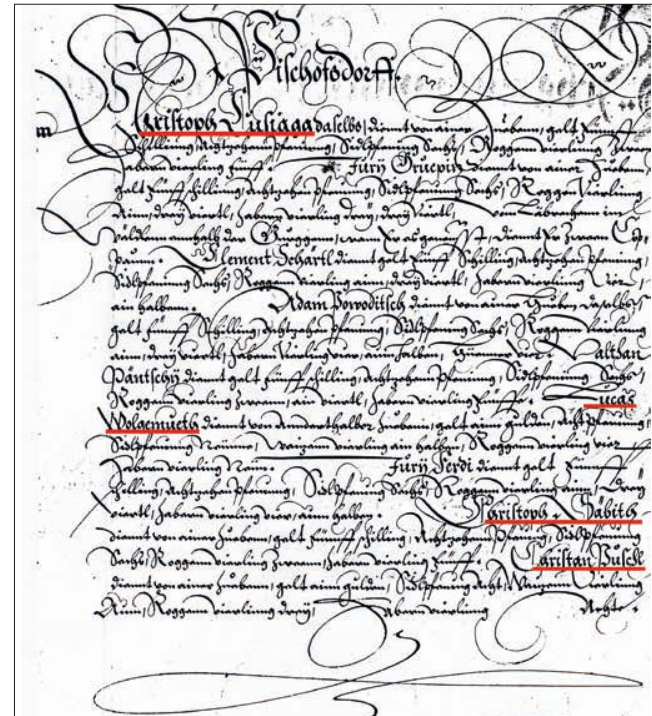 Bischofsdorff.
Christoph Lusigga daselbs, dient von ainer Hueben, gelt Fünff
Schilling, Achtzehen Pfening, Sidlpfening Sechs, Roggen vierling Zween
Habern vierling Fünff. Jury dient von ainer Hueben,
gelt Fünff schilling, Achtzehen Pfening, Sidlpfening Sechs, Roggen Vierling
Ainn, drey viertl, habern vierling drey, drey viertl, vom im
enhalb der Gurggen, wann Er es dient Er zween Cop=
paun. Clement Schärtl dient gelt Fünff Schilling, Achtzehen Pfening,
Sidlpfening Sechs, Roggen vierling ainn, drey viertl, Habern vierling Vier,
ain halben. Adam Powoditsch dient von ainer Hueben, daselbs,
gelt Fünff Schilling, Achtzehen Pfening, Sidlpfening Sechs, Roggen vierling
ainn, drey viertl, habern Vierling vier, ainn halben, Hüenner vier. Balthan
Päntschy dient gelt Fünff schilling, Achtzehen Pfening, Sidlpfening Sechs,
Roggen vierling Zween, ain viertl, Habern vierling Fünffe. Lucas
Wolgemueth dient von Anderthalber hueben, gelt ain gulden, Acht Pfening,
Sidlpfening Neune, Waizen vierling ain halben, Roggen vierling vier
Habern vierling Neun. Jury Ferdi dient gelt Fünff
schilling, Achtzehen Pfening, Sidlpfening Sechs, Roggen vierling ainn, Drey
viertl, habern vierling vier, ainn halben. Christoph Säbith
dient von ainer Hueben, gelt Fünff schilling, Achtzehen Pfening, Sidlpfening
Sechs, Roggen vierling Zween, habern vierling Fünff. Christan Püschl
dient von ainer hueben, gelt ain gulden, Sidlpfening Acht, Waizen Vierling
Ainn, Roggen vierling drey, Habern vierling Achte.